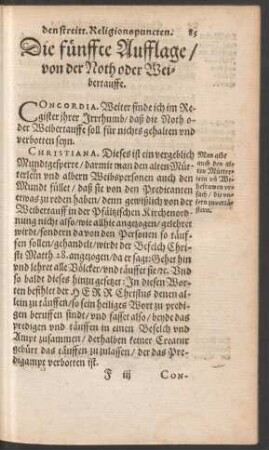 den streitt. Religionspuncten. 85
Die fünffte Aufflage /
von der Noth oder Wei-
bertauffe.
CONCORDIA. Weiter finde ich im Re-
gister ihrer Irrthumb / daß die Noth o-
der Weibertauffe soll für nichts gehalten vnd
verbotten seyn.
CHRISTIANA. Dieses ist ein vergeblich
Mundtgesperre / darmit man den alten Müt-
terlein vnd albern Weibspersonen auch den
Mundt füllet / daß sie von den Predicanten
etwas zu reden haben / denn gewißlich von der
Weibertauff in der Pfältzischen Kirchenord-
nung nicht also / wie allhie angezogen / gelehret
wird / sondern da von den Personen so täuf-
fen sollen / gehandelt / wirdt der Befelch Chri-
sti Matth 28. angezogen / da er sage: Gehet hin
vnd lehret alle Völcker / vnd täuffet sie &c. Vnd
so baldt dieses hinzu gesetzt: In diesen Wor-
ten befihlet der HERR Christus denen al-
lein zu täuffen / so sein heiliges Wort zu predi-
gen beruffen sindt / vnd fasset also / beyde das
predigen vnd täuffen in einen Befelch vnd
Ampt zusammen / derhalben keiner Creatur
gebürt das täuffen zuzulassen / der das Pre-
digampt verbotten ist.
F iij CON-
Man gibt
auch den al-
ten Mütter-
lein